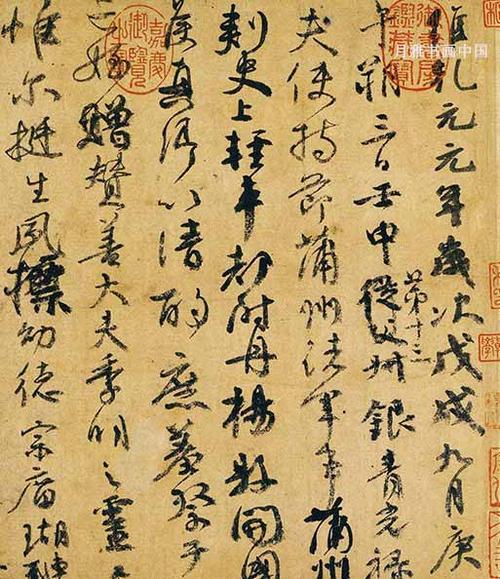 維乾元元年歲次戊戌九月庚
午朔三日壬申第十三從父叔銀青光祿
夫使持節蒲州諸軍事蒲州
刺史上輕車都尉丹楊縣開國
侯真卿以清酌庶羞祭于
亡姪贈贊善大夫季明之靈
惟爾挺生夙標幼德宗廟瑚
月雅书画中国
嘉慶御覽之寶